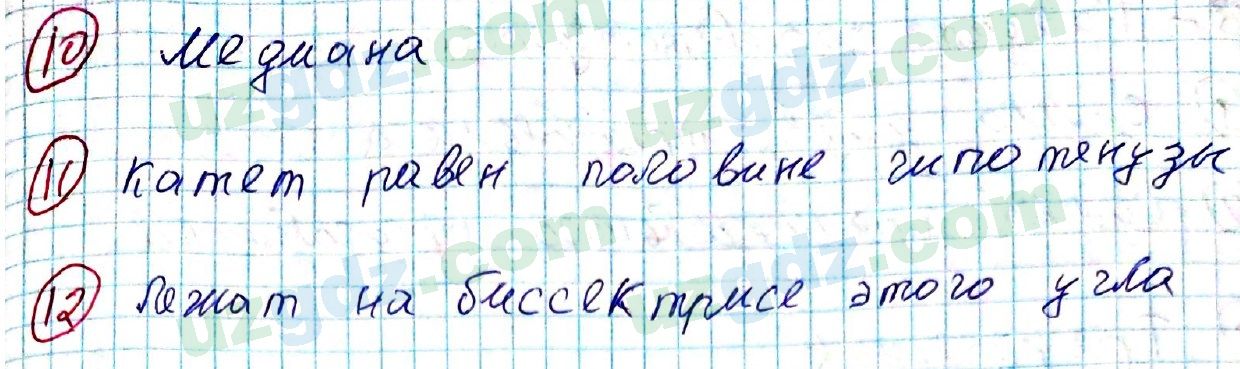 10 Медиана
11 Катет равен половине гипотенузы
12 Лежат на биссектрисе этого угла
uzgdz.com uzgdz.com
uzgdz.com uzgdz.com